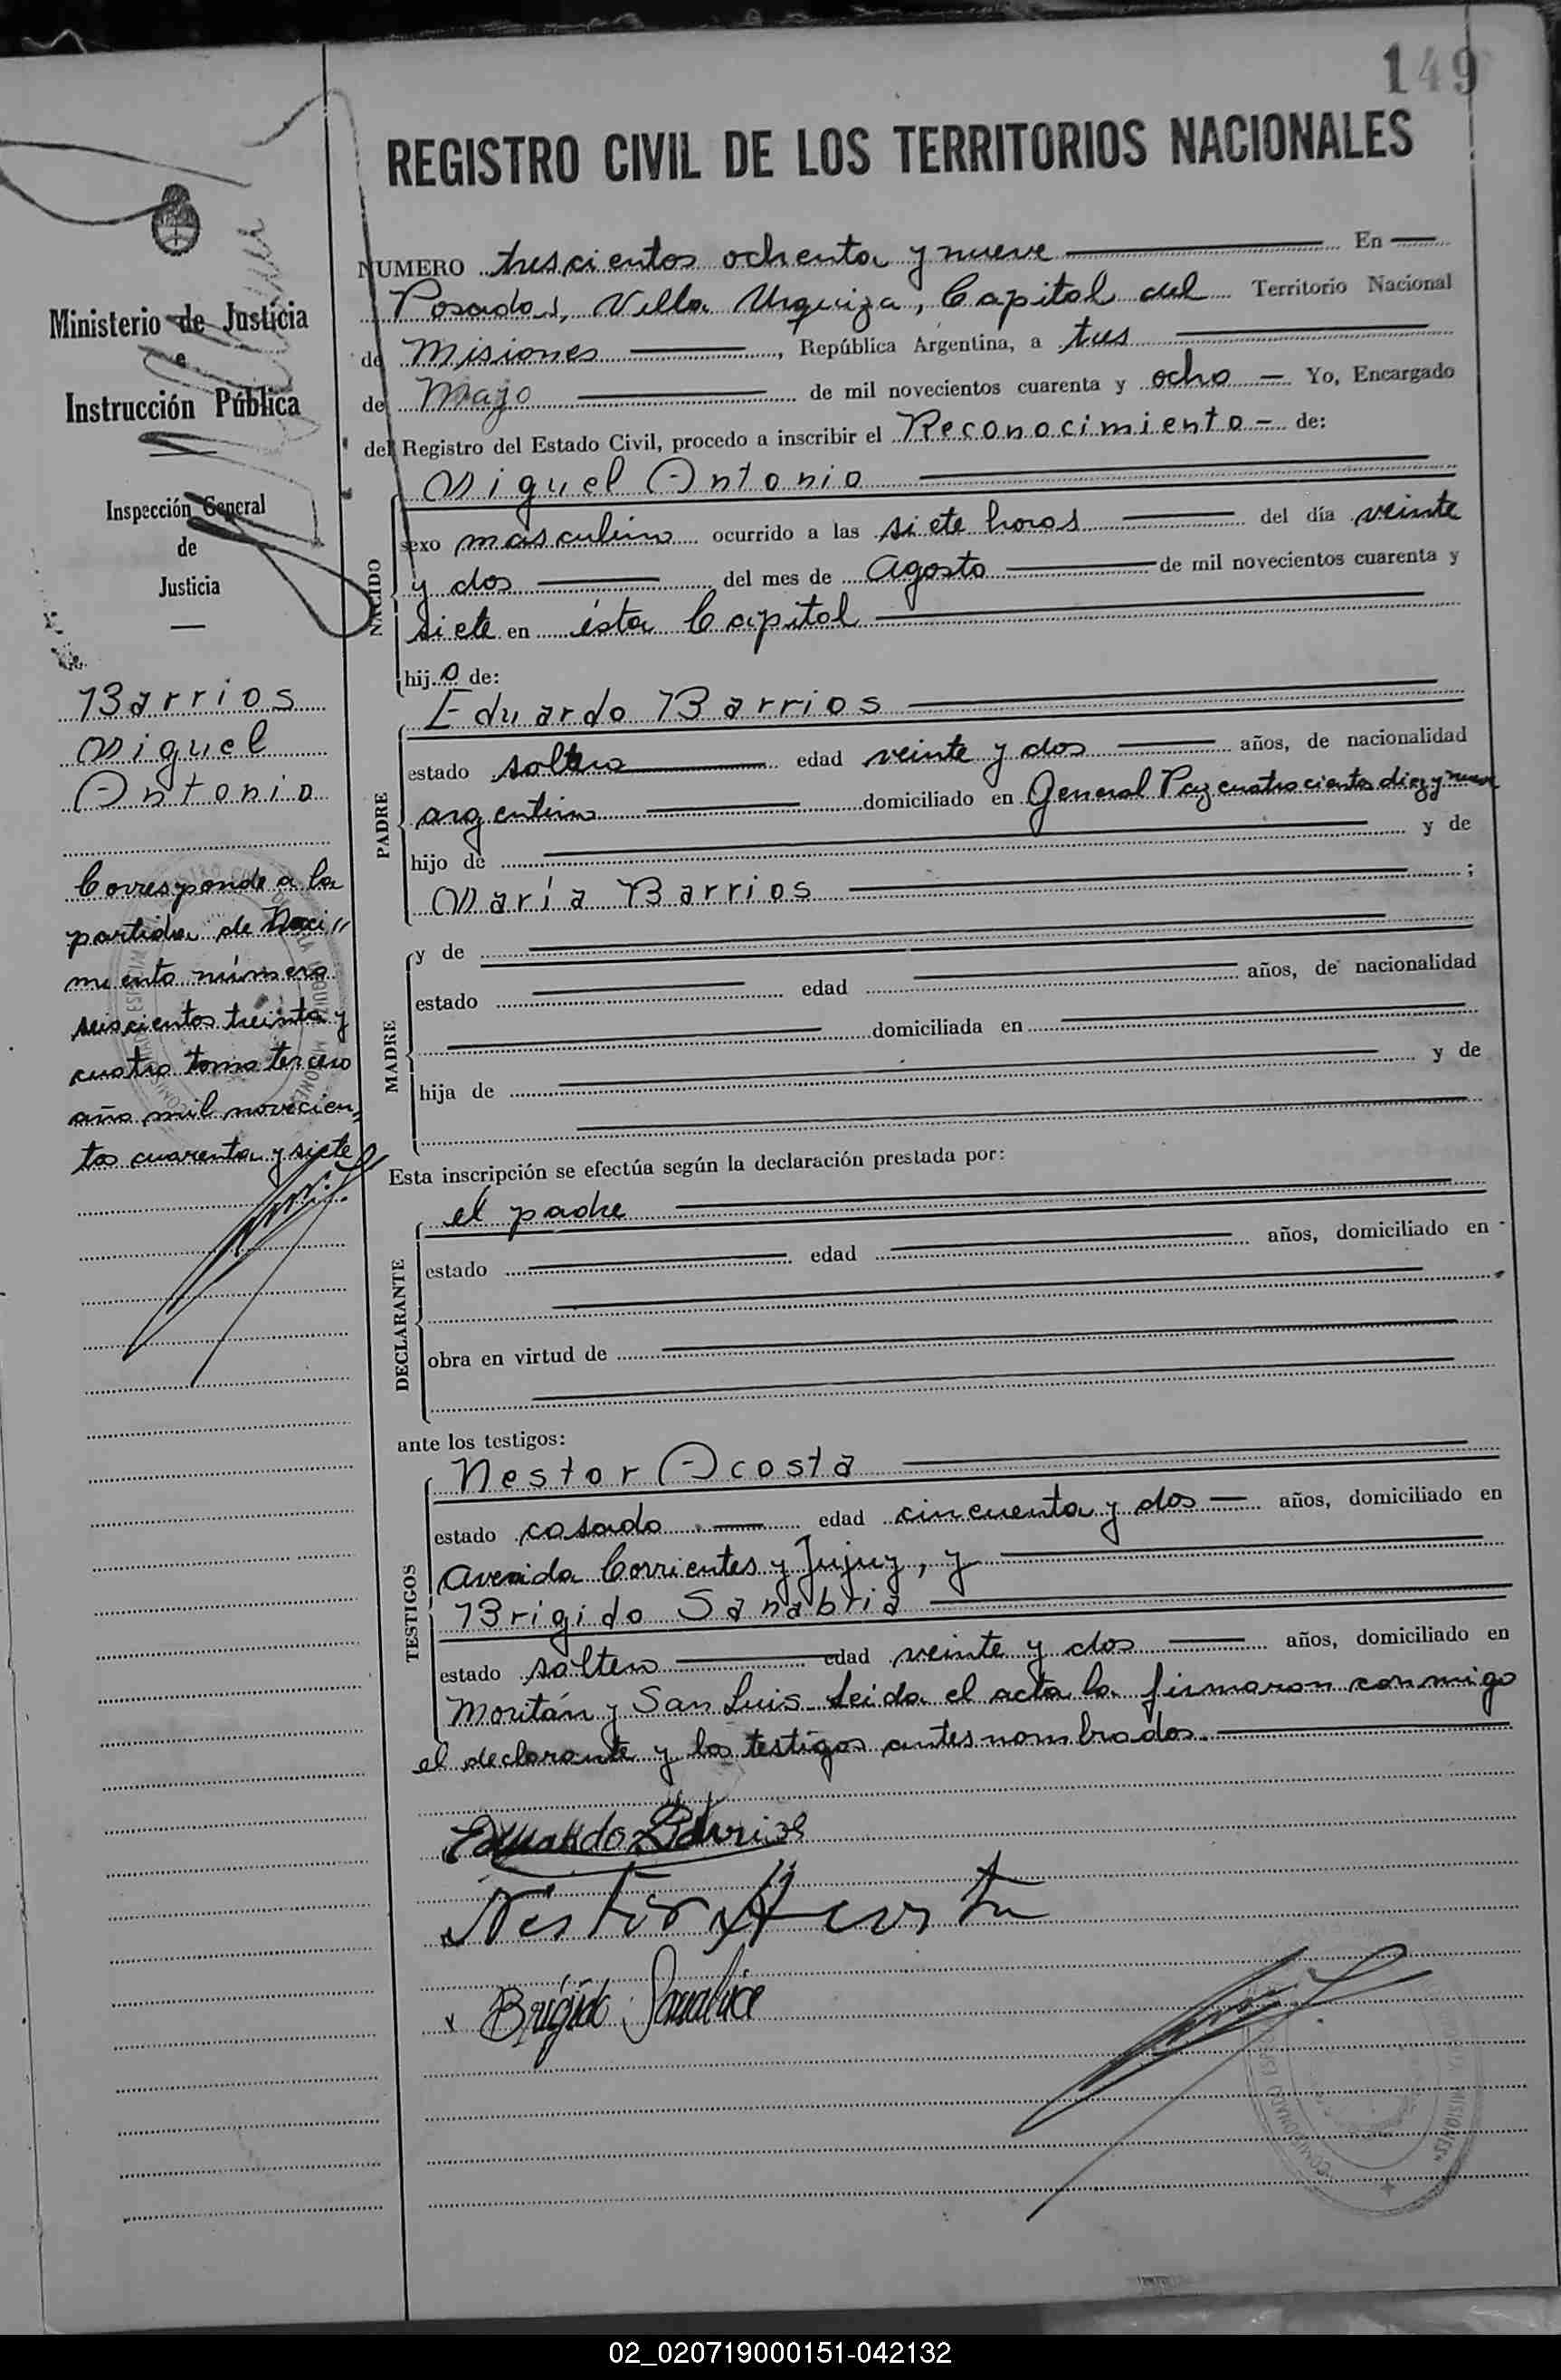 149
REGISTRO CIVIL DE LOS TERRITORIOS NACIONALES
Ministerio de Justicia
e
Instrucción Pública
Inspección General
de
Justicia
Barrios
Miguel
Antonio
Corresponde a la
partida de Naci"
miento número
seiscientos treinta y
cuatro tomo tercero
año mil novecien,
tos cuarenta y siete
NUMERO trescientos ochenta y nueve En
Posadas, Villa Urquiza, Capital del Territorio Nacional
de Misiones, República Argentina, a tres
de Mayo de mil novecientos cuarenta y ocho Yo, Encargado
del Registro del Estado Civil, procedo a inscribir el Reconocimiento de:
NACIDO
Miguel Antonio
sexo masculino ocurrido a las siete horas del día veinte
y dos del mes de Agosto de mil novecientos cuarenta y
siete en ésta Capital
hijo de:
PADRE
Eduardo Barrios
estado soltero edad veinte y dos años, de nacionalidad
argentino domiciliado en General Paz cuatrocientos diez y nueve
hijo de y de
María Barrios ;
MADRE
y de
estado edad años, de nacionalidad
domiciliada en
hija de y de
Esta inscripción se efectúa según la declaración prestada por:
DECLARANTE
el padre
estado edad años, domiciliado en
obra en virtud de
ante los testigos:
TESTIGOS
Nestor Acosta
estado casado edad cincuenta y dos años, domiciliado en
Avenida Corrientes y Jujuy, y
Brigido Sanabria
estado soltero edad veinte y dos años, domiciliado en
Moritán y San Luis. Leida el acta la firmaron conmigo
el declarante y los testigos antes nombrados.
Eduardo Barrios
Nestor Acosta
x Brigido Sanabria
COMISIONADO MISIONES
02_020719000151-042132